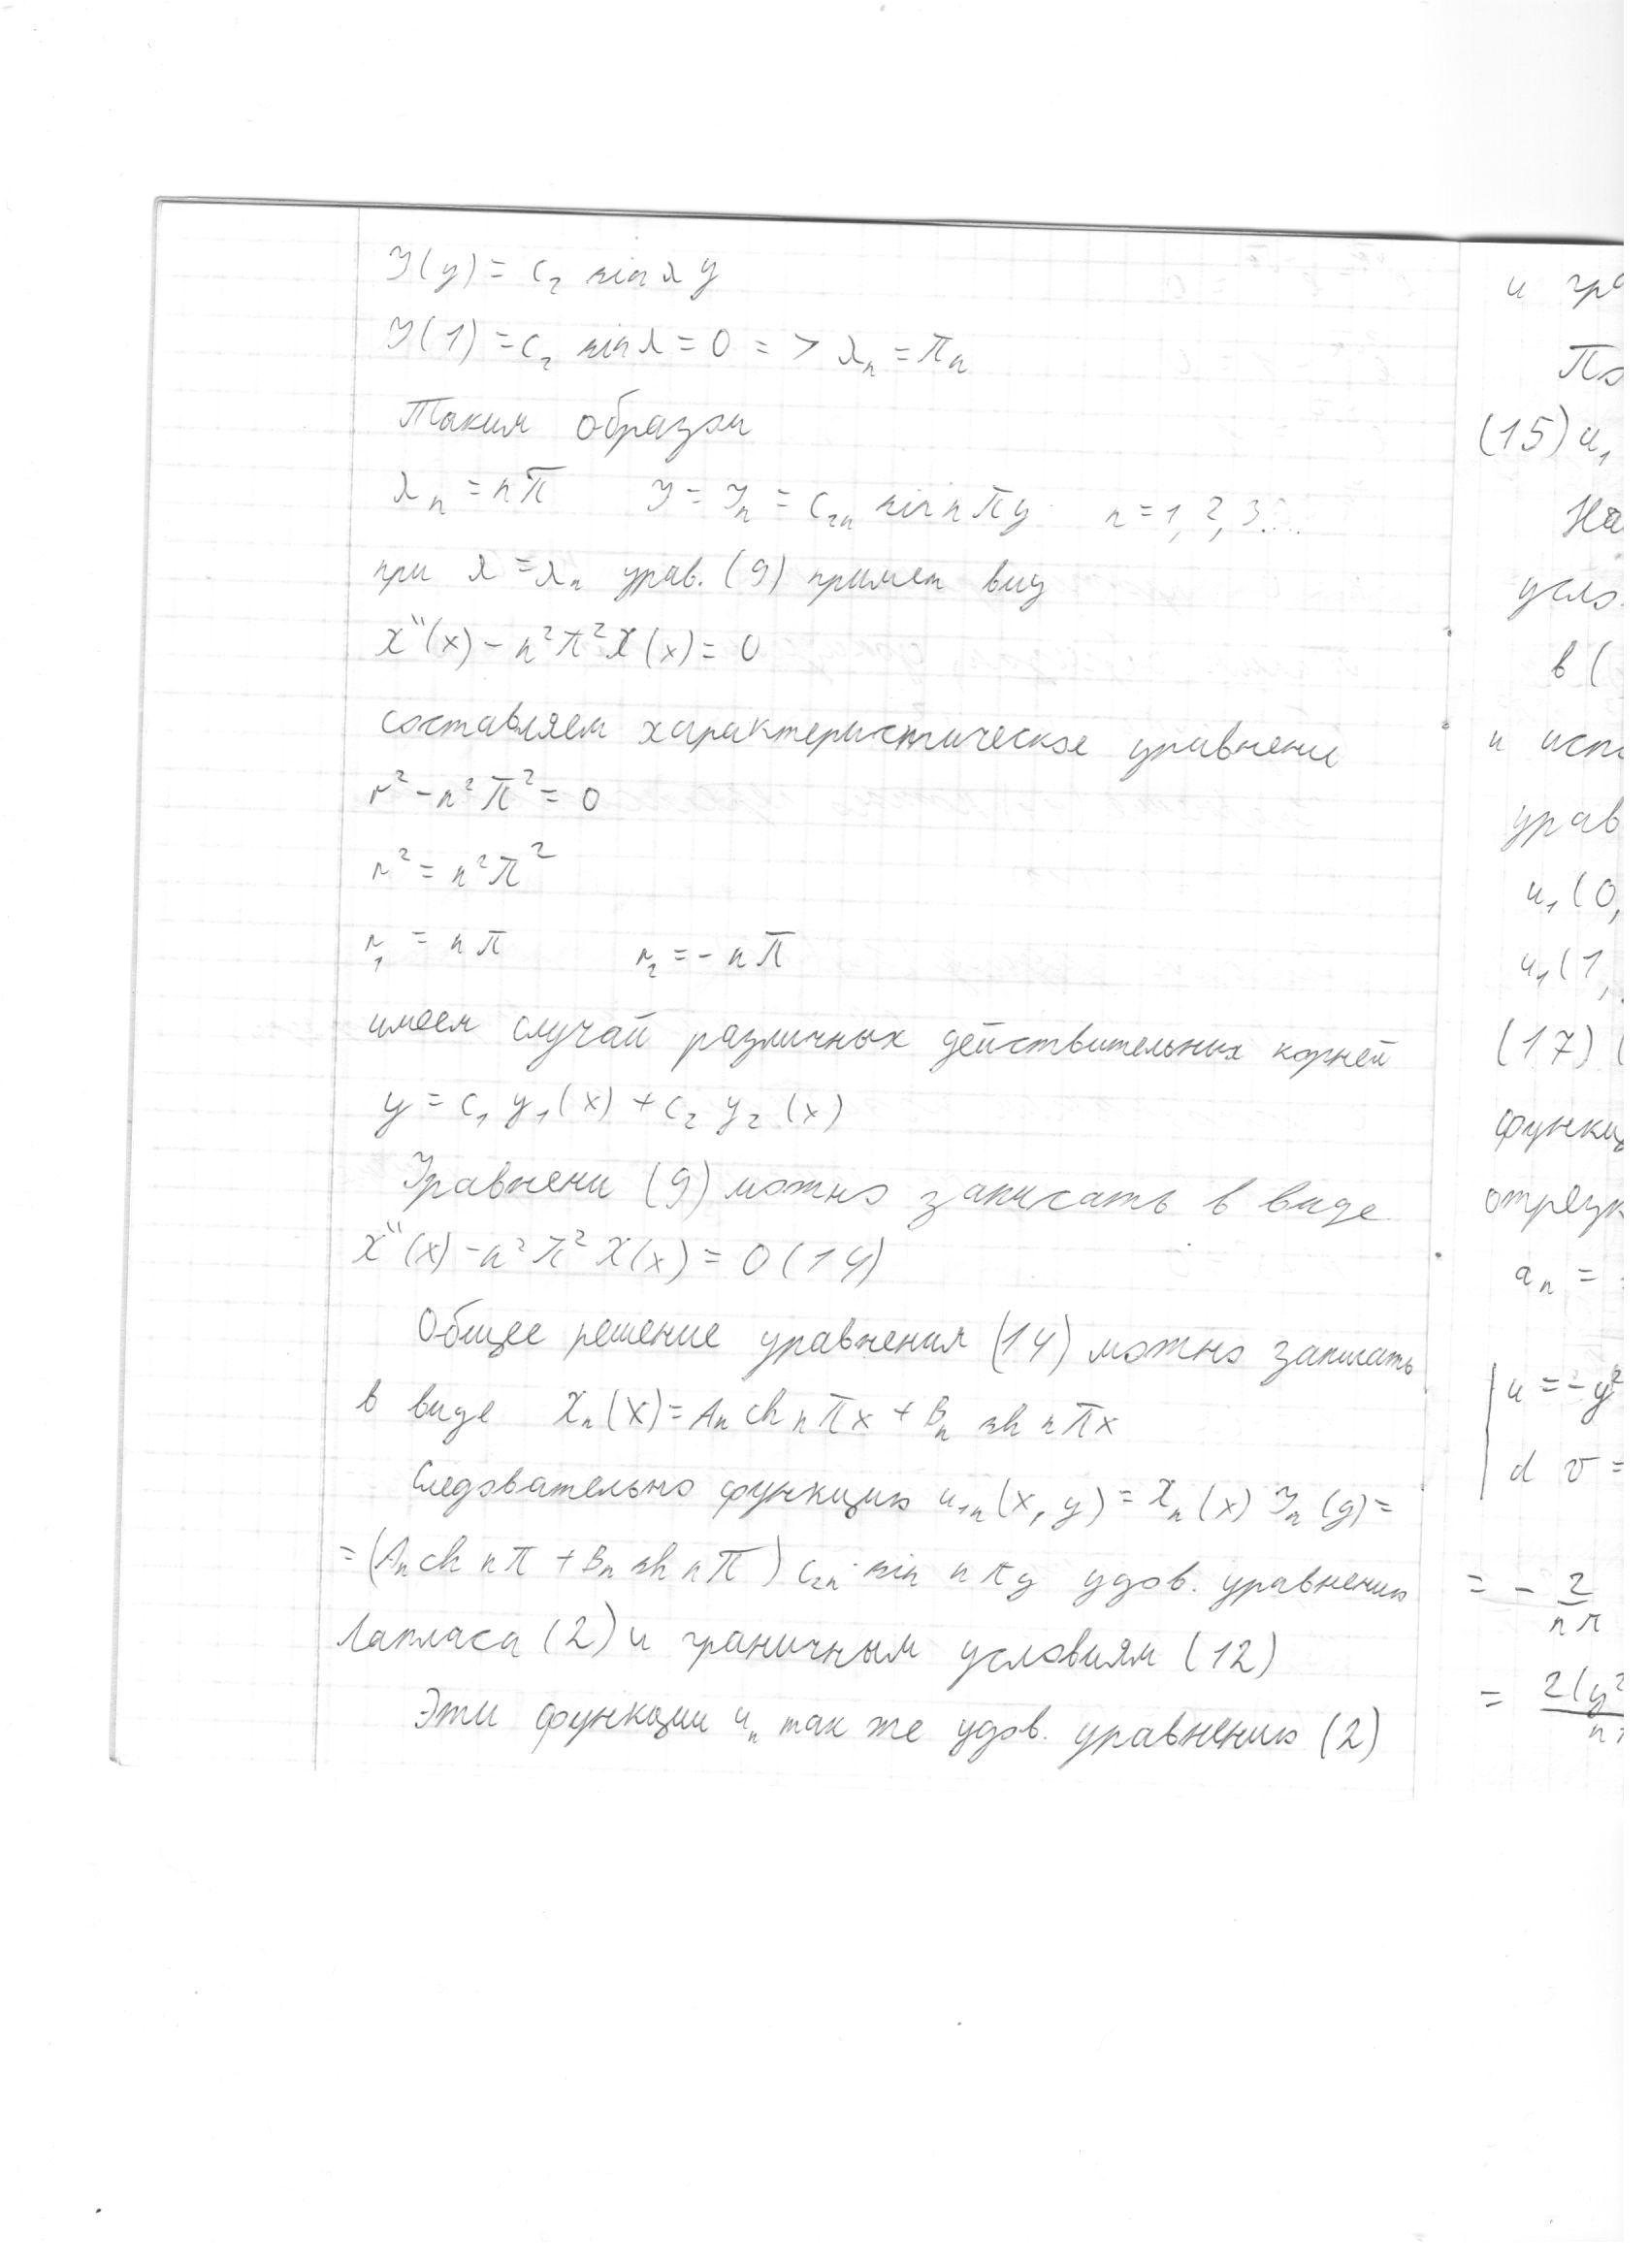 Y(y) = c₂ sin λ y
Y(1) = c₂ sin λ = 0 => λₙ = πn
Таким образом
λₙ = nπ Y = Yₙ = c₂ₙ sin nπy n = 1, 2, 3...
при λ = λₙ урав. (9) примет вид
X"(x) - n²π²X(x) = 0
составляем характеристическое уравнени
r² - n²π² = 0
r² = n²π²
r₁ = nπ r₂ = - nπ
имеем случай различных действительных корней
y = c₁ y₁(x) + c₂ y₂(x)
Уравнени (9) можно записать в виде
X"(x) - n²π² X(x) = 0 (14)
Общее решение уравнения (14) можно записать
в виде Xₙ(x) = Aₙ ch nπx + Bₙ sh nπx
Следовательно функцию u₁ₙ(x, y) = Xₙ(x) Yₙ(y) =
= (Aₙ ch nπ + Bₙ sh nπ) c₂ₙ sin nπy удов. уравнению
Лапласа (2) и граничным условиям (12)
Эти функции uₙ так же удов. уравнению (2)
и гра
По
(15) u₁
На
усло
в (
и исп
урав
u₁(0,
u₁(1,
(17) (
функц
отрезк
aₙ =
u = - y²
d v =
= - 2/nπ
= 2(y²